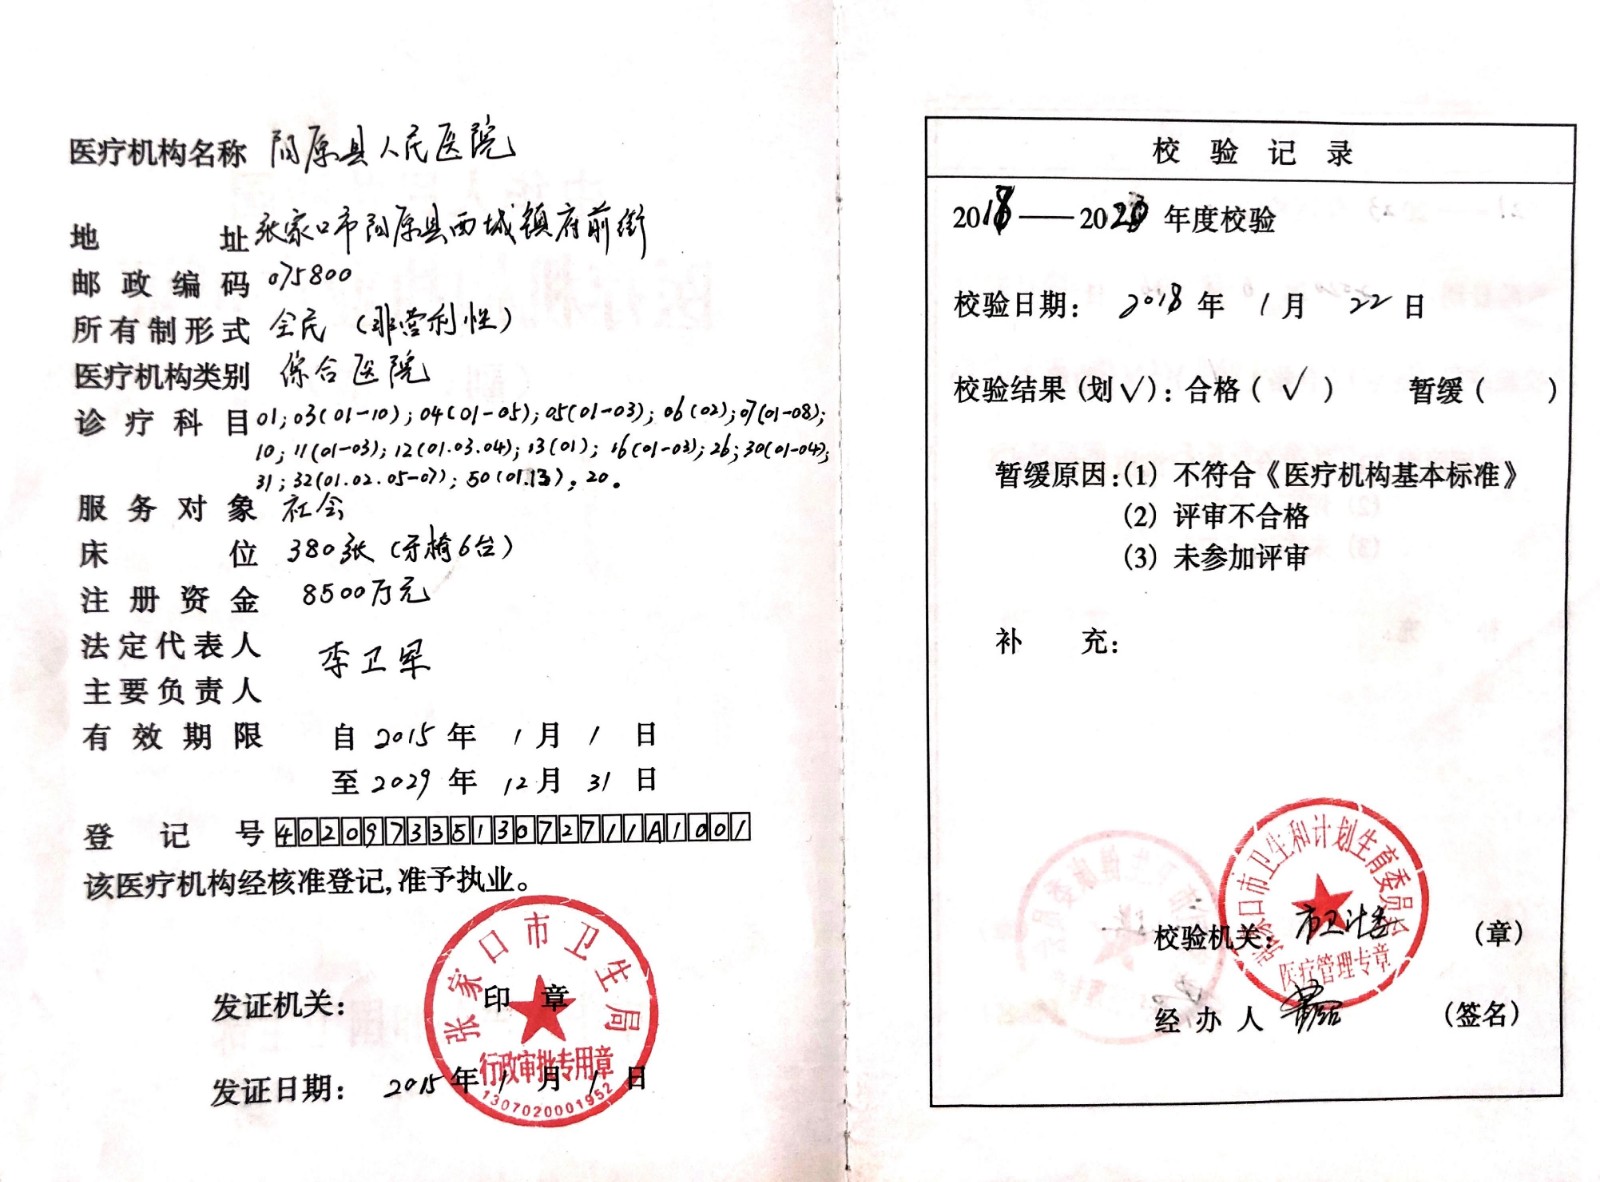 医疗机构名称 阳原县人民医院
地址 张家口市阳原县西城镇府前街
邮政编码 075800
所有制形式 全民（非营利性）
医疗机构类别 综合医院
诊疗科目 01；03(01-10)；04(01-05)；05(01-03)；06(02)；07(01-08)；
10；11(01-03)；12(01.03.04)；13(01)；16(01-03)；26；30(01-04)；
31；32(01.02.05-07)；50(01.13)，20。
服务对象 社会
床位 380张（牙椅6台）
注册资金 8500万元
法定代表人 李卫军
主要负责人
有效期限 自 2015 年 1 月 1 日
至 2029 年 12 月 31 日
登记号 40209733513072711A1001
该医疗机构经核准登记,准予执业。
发证机关： 印章
张家口市卫生局
行政审批专用章
1307020001952
发证日期： 2015 年 1 月 1 日
校验记录
2018——2020 年度校验
校验日期： 2018 年 1 月 22 日
校验结果 (划√)：合格 ( √ ) 暂缓 ( )
暂缓原因：(1) 不符合《医疗机构基本标准》
(2) 评审不合格
(3) 未参加评审
补充：
张家口市卫生和计划生育委员会
医疗管理专章
校验机关：市卫计委 (章)
经办人 (签名)